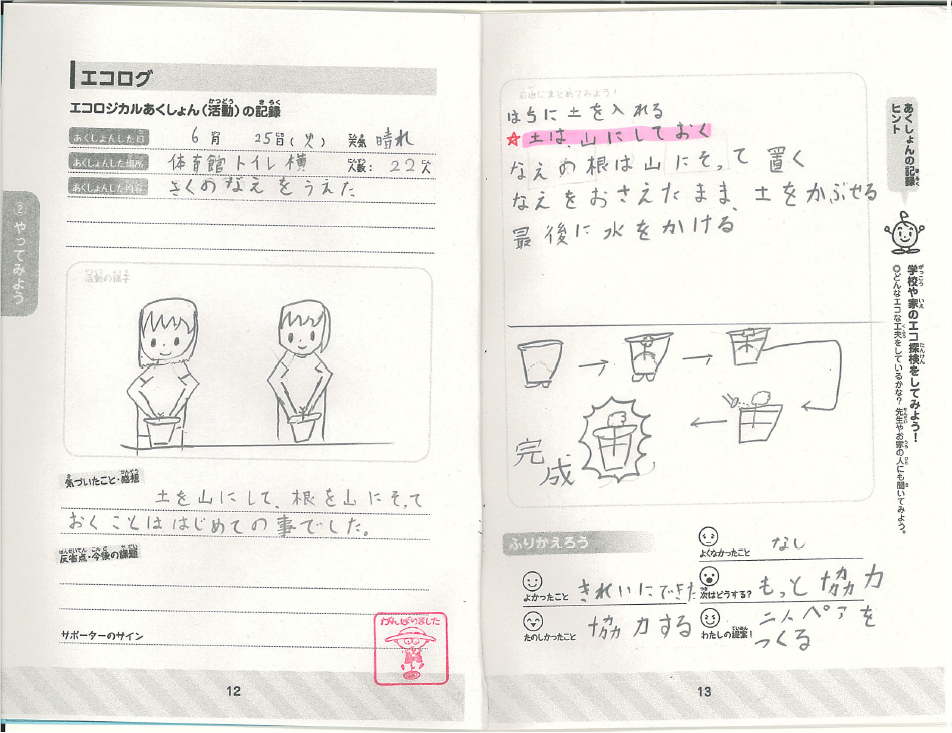 エコログ
エコロジカルあくしょん(活動)の記録
あくしょんした日 6月 25日(火) 天気 晴れ
あくしょんした場所 体育館トイレ横 人数: 22人
あくしょんした内容 きくのなえをうえた
② やってみよう
活動の様子
気づいたこと・感想
土を山にして、根を山にそって
おくことははじめての事でした。
反省点・今後の課題
サポーターのサイン
がんばりました
12
自由にまとめてみよう!
はちに土を入れる
☆土は、山にしておく
なえの根は山にそって置く
なえをおさえたまま、土をかぶせる
最後に水をかける
完成
ふりかえろう
よくなかったこと なし
よかったこと きれいにできた
次はどうする? もっと協力
たのしかったこと 協力する
わたしの提案! 二人ペアを
つくる
13
あくしょんの記録
ヒント
学校や家のエコ探検をしてみよう!
◎どんなエコな工夫をしているかな? 先生やお家の人にも聞いてみよう。